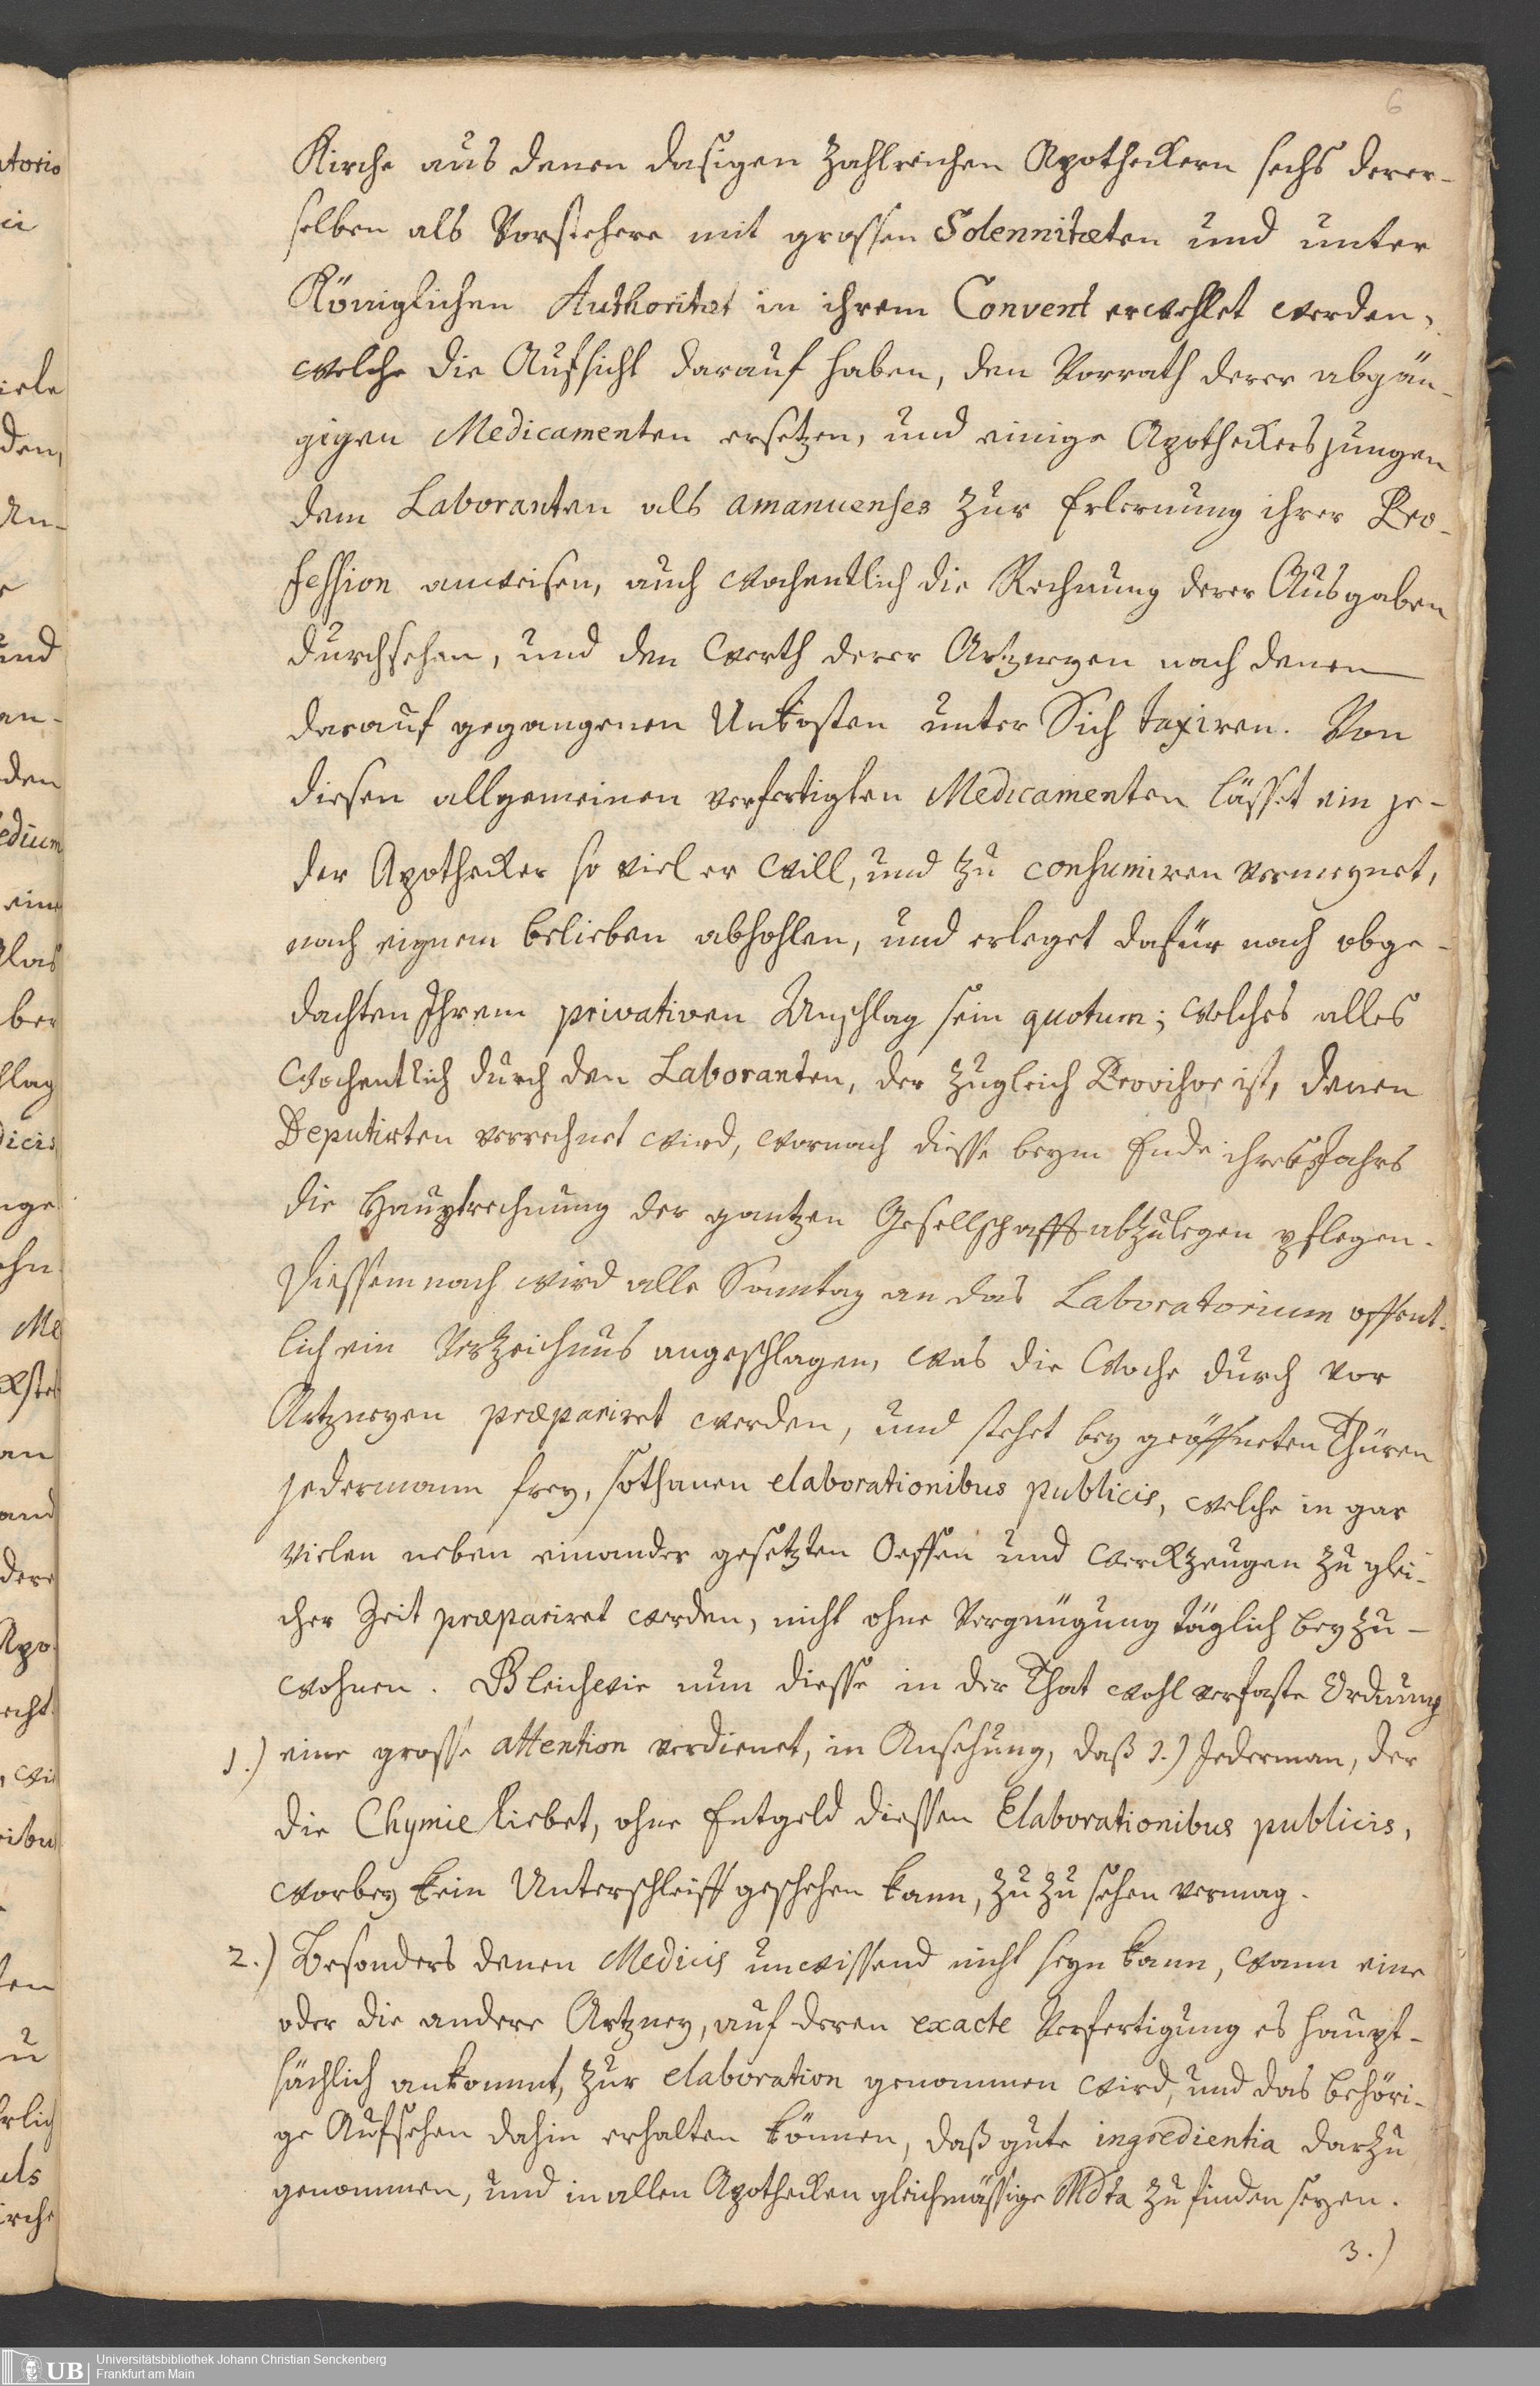 6
Kirche aus denen dasigen zahlreichen Apotheckern sechs derer-
selben als Vorstehere mit grossen Solennitæten und unter
Königlichen Authoritæt in ihrem Convent erwehlet werden,
welche die Aufsicht darauf haben, den Vorrath derer abgän-
gigen Medicamenten ersetzen, und einige Apotheckersjungen
dem Laboranten als amanuenses zur Erlernung ihrer Pro-
fession anweisen, auch wochentlich die Rechnung derer Ausgaben
durchsehen, und den Werth derer Artzneyen nach denen
darauf gegangenen Unkosten unter Sich taxiren. Von
diesen allgemeinen verfertigten Medicamenten lässet ein je-
der Apothecker so viel er will, und zu consumiren vermeynet,
nach eignem belieben abhohlen, und erleget dafür nach obge-
dachten Ihrem privativen Anschlag sein quotum; welches alles
Wochentlich durch den Laboranten, der zugleich Provisor ist, denen
Deputirten verrechnet wird, wornach diesse beym Ende ihres Jahrs
die Hauptrechnung der gantzen Gesellschafft abzulegen pflegen.
Diessemnach wird alle Sonntag an das Laboratorium offent-
lich ein Verzeichnus angeschlagen, was die Woche durch vor
Artzneyen præpariret werden, und stehet bey geöffneten Thüren
jedermann frey, sothanen elaborationibus publicis, welche in gar
vielen neben einander gesetzten Oeffen und Werckzeugen zu glei-
cher Zeit præpariret werden, nicht ohne Vergnügung täglich beyzu-
wohnen. Gleichwie nun diesse in der That wohl verfaste Ordnung
1.) eine grosse attention verdienet, in Ansehung, daß 1.) Jederman, der
die Chymie liebet, ohne Entgeld diessen Elaborationibus publicis,
worbey kein Unterschleiff geschehen kann, zu zu sehen vermag.
2.) Besonders denen Medicis unwissend nicht seyn kann, wann eine
oder die andere Artzney, auf deren exacte Verfertigung es haupt-
sächlich ankommt, zur elaboration genommen wird, und das behöri-
ge Aufsehen dahin erhalten können, daß gute ingredientia darzu
genommen, und in allen Apothecken gleichmässige Mdta zu finden seyen.
3.)
UB
Universitätsbibliothek Johann Christian Senckenberg
Frankfurt am Main